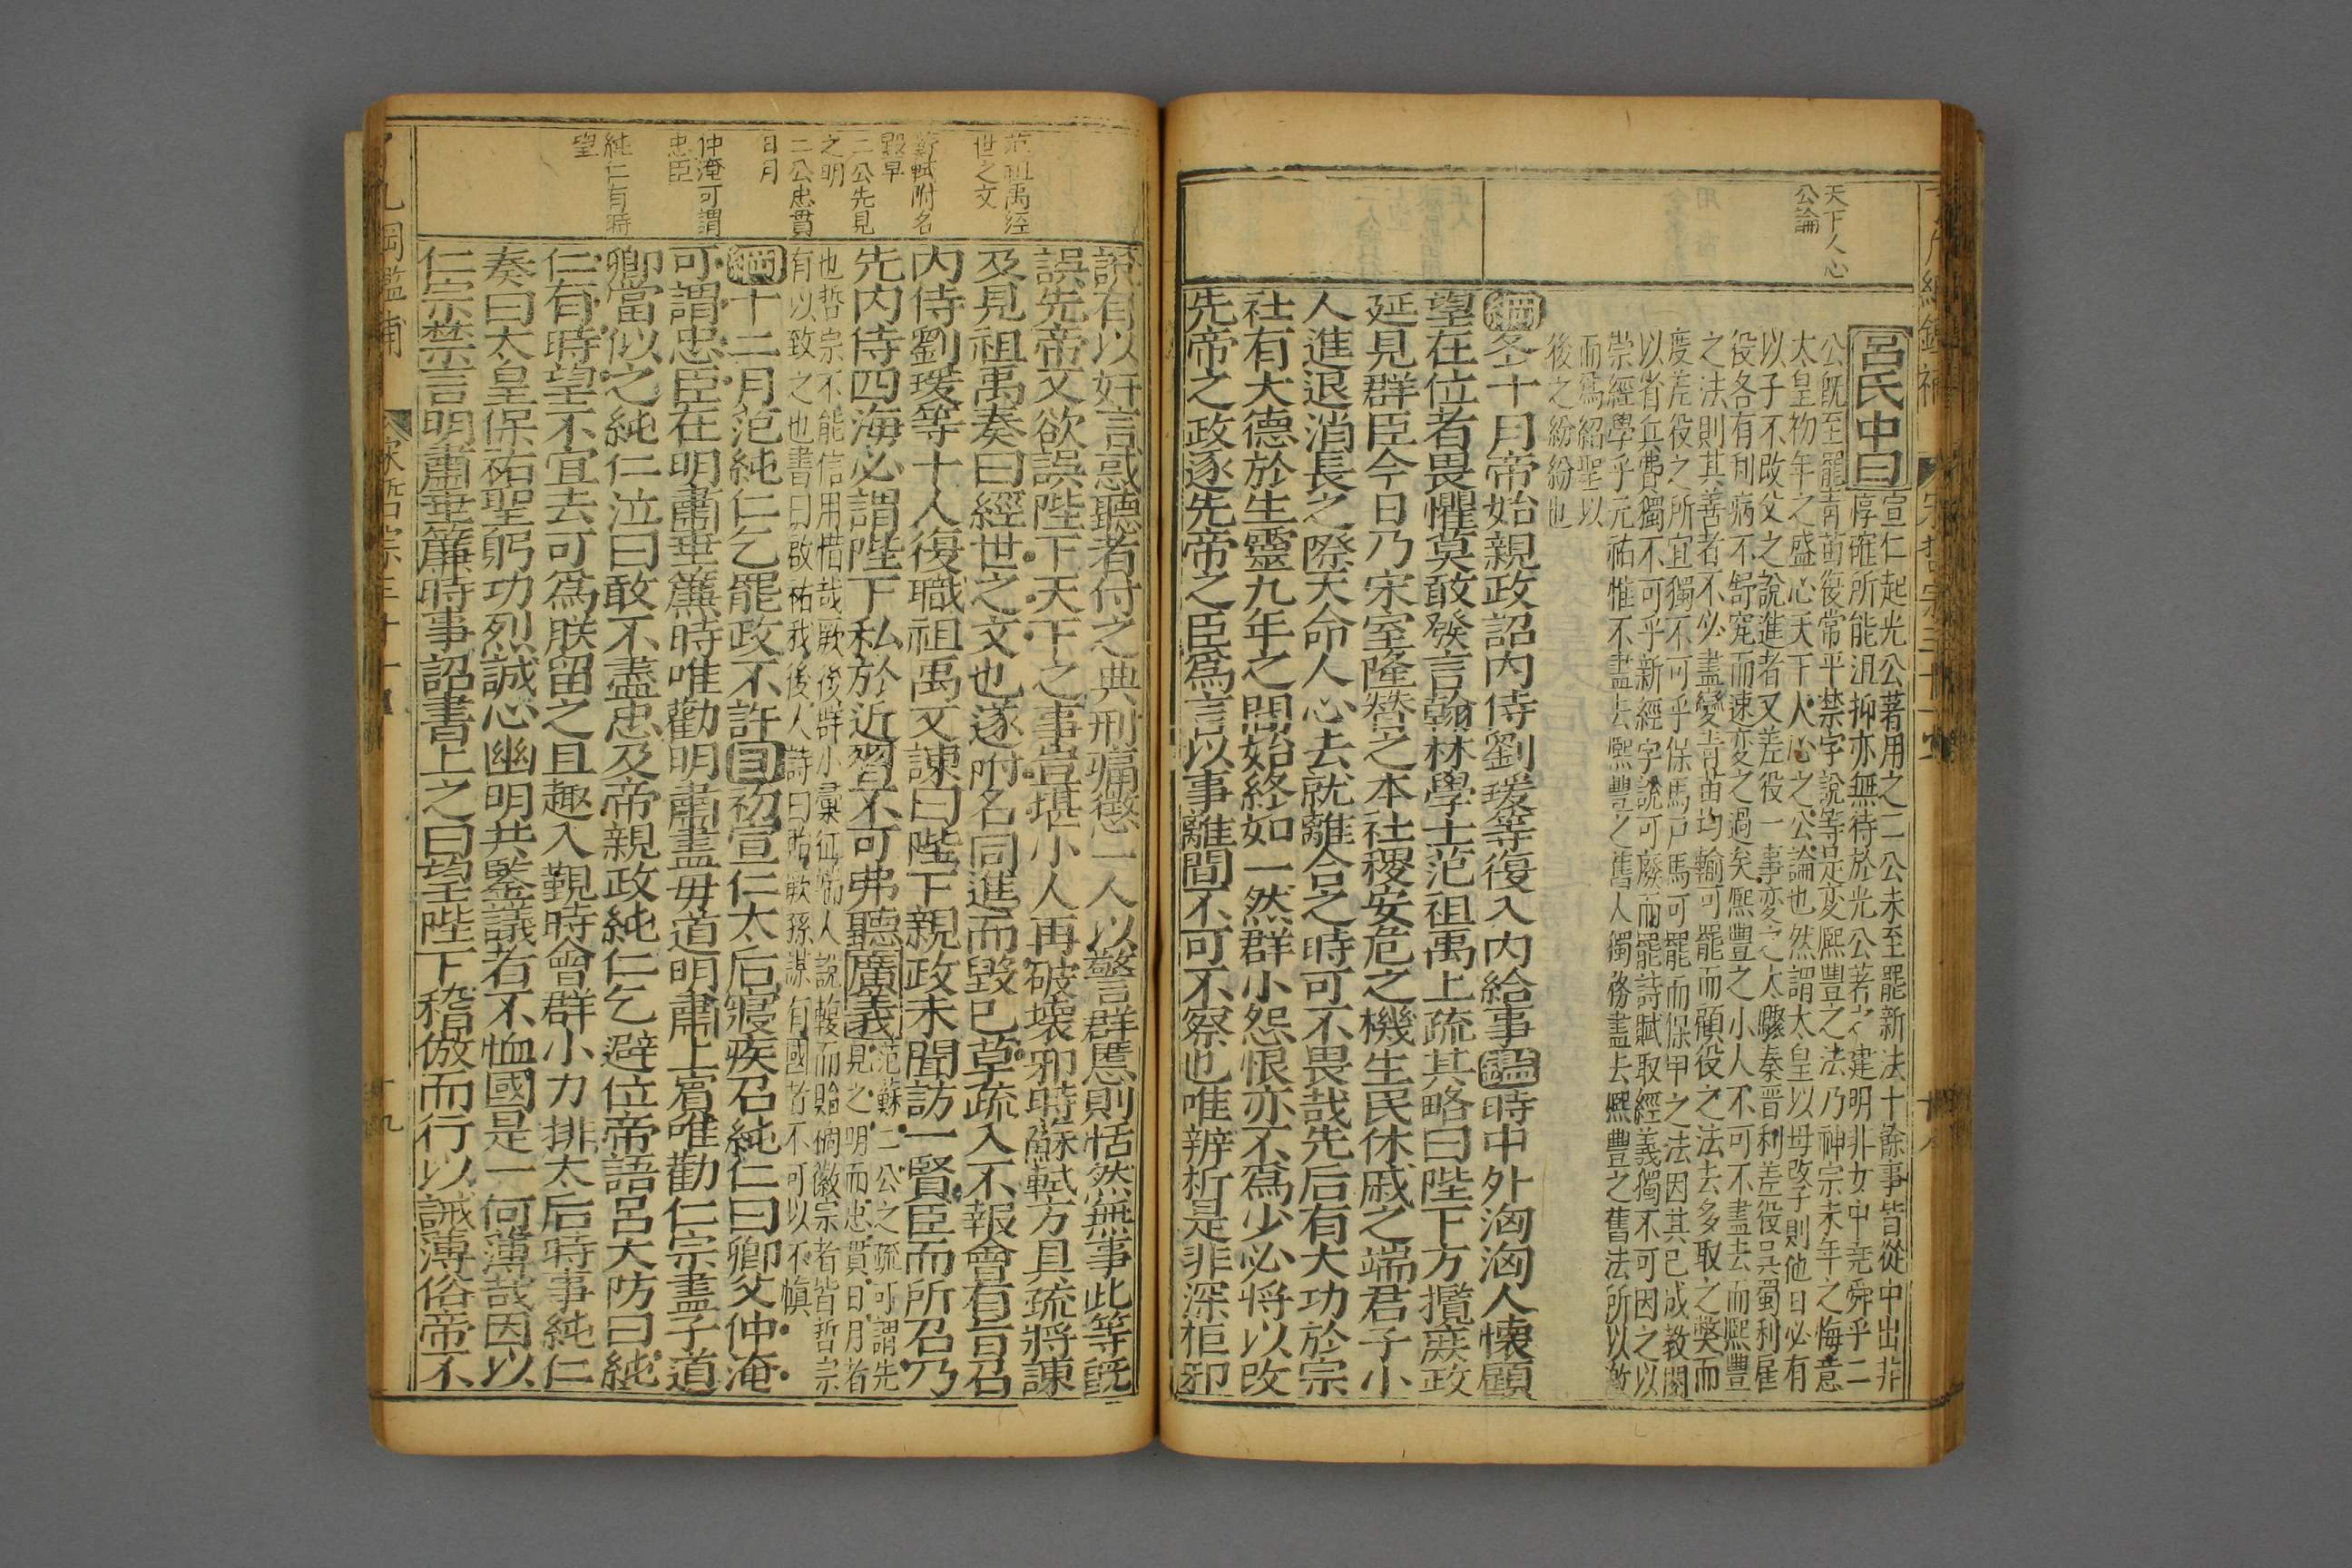 天下人心
公論
呂氏中曰
宣仁起光公著用之二公未至罷新法十餘事皆從中出非
惇確所能沮抑亦無待於光公著之建明非女中堯舜乎二
公既至罷青苗復常平禁字說等是変熈豐之法乃神宗末年之悔意
太皇初年之盛心天下人心之公論也然謂太皇以母改子則他日必有
以子不改父之說進者又差役一事変之太驟秦晋利差役吳蜀利雇
役各有利病不舒究而速变之過矣熈豐之小人不可不盡去而熈豐
之法則其善者不必盡變青苗均輸可罷而顧役之法去多取之弊而
度差役之所宜獨不可乎保馬戸馬可罷而保甲之法因其已成教閱
以省兵費獨不可乎新經字說可廢而罷詩賦取經義獨不可因之以
崇經學乎元祐惟不盡去熈豐之舊人獨務盡去熈豐之舊法所以激
而爲紹聖以
後之紛紛也
綱冬十月帝始親政詔內侍劉瑗等復入內給事鑑時中外洶洶人懷顧
望在位者畏懼莫敢發言翰林學士范祖禹上疏其略曰陛下方攬庶政
延見群臣今日乃宋室隆替之本社稷安危之機生民休戚之端君子小
人進退消長之際天命人心去就離合之時可不畏哉先后有大功於宗
社有大德於生靈九年之間始終如一然群小怨恨亦不爲少必將以改
先帝之政逐先帝之臣爲言以事離間不可不察也唯辨析是非深柜邪
說有以奸言惑聽者付之典刑痛懲一人以警群慝則恬然無事此等既
誤先帝又欲誤陛下天下之事豈堪小人再破壞邪時蘇軾方具疏將諫
及見祖禹奏曰經世之文也遂附名同進而毀已草疏入不報會有旨召
內侍劉瑗等十人復職祖禹又諫曰陛下親政未聞訪一賢臣而所召乃
先內侍四海必謂陛下私於近習不可弗聽廣義范蘇二公之疏可謂先
見之明而忠貫日月者
也哲宗不能信用惜哉厥後群小彙征憸人說輳而貽倜徽宗者皆哲宗
有以致之也書曰啟祐我後人詩曰貽厥孫謀有國者不可以不愼
綱十二月范純仁乞罷政不許目初宣仁太后寢疾召純仁曰卿父仲淹
可謂忠臣在明肅垂簾時唯勸明肅盡毋道明肅上賓唯勸仁宗盡子道
卿當似之純仁泣曰敢不盡忠及帝親政純仁乞避位帝語呂大防曰純
仁有時望不宜去可爲朕留之且趣入覲時會群小力排太后時事純仁
奏曰太皇保祐聖躬功烈誠心幽明共鑒議者不恤國是一何薄哉因以
仁宗禁言明肅垂簾時事詔書上之曰望陛下稽倣而行以誡薄俗帝不
范祖禹經
世之文
蘇軾附名
毀草
二公先見
之明
二公忠貫
日月
仲淹可謂
忠臣
純仁有時
望